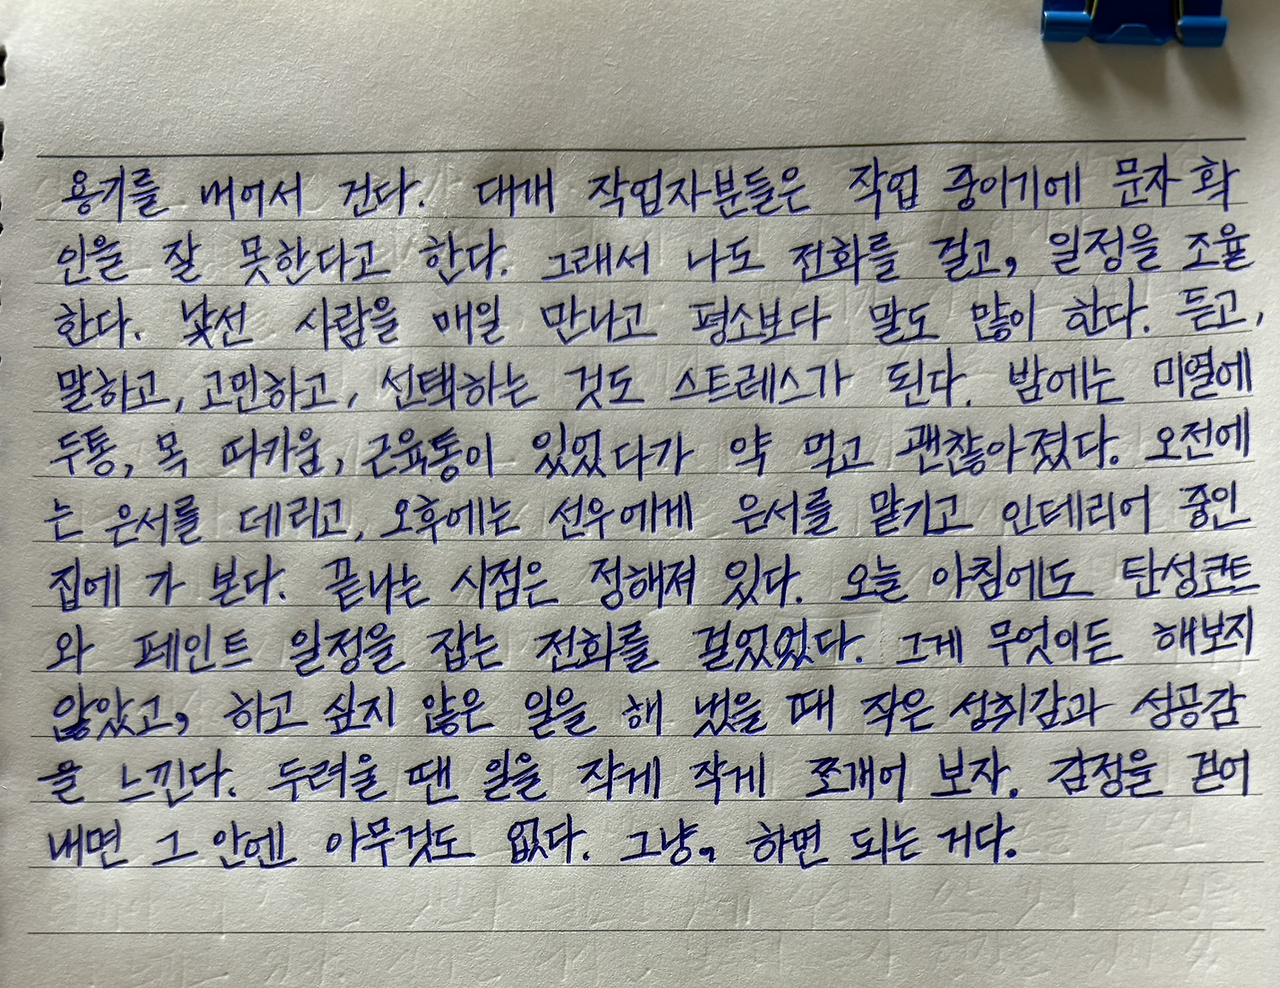 용기를 내어서 건다. 대개 작업자분들은 작업 중이기에 문자 확
인을 잘 못한다고 한다. 그래서 나도 전화를 걸고, 일정을 조율
한다. 낯선 사람을 매일 만나고 평소보다 말도 많이 한다. 듣고,
말하고, 고민하고, 선택하는 것도 스트레스가 된다. 밤에는 미열에
두통, 목 따가움, 근육통이 있었다가 약 먹고 괜찮아졌다. 오전에
는 은서를 데리고, 오후에는 선우에게 은서를 맡기고 인테리어 중인
집에 가 본다. 끝나는 시점은 정해져 있다. 오늘 아침에도 탄성코트
와 페인트 일정을 잡는 전화를 걸었었다. 그게 무엇이든 해보지
않았고, 하고 싶지 않은 일을 해 냈을 때 작은 성취감과 성공감
을 느낀다. 두려울 땐 일을 작게 작게 쪼개어 보자. 감정을 걷어
내면 그 안엔 아무것도 없다. 그냥, 하면 되는 거다.